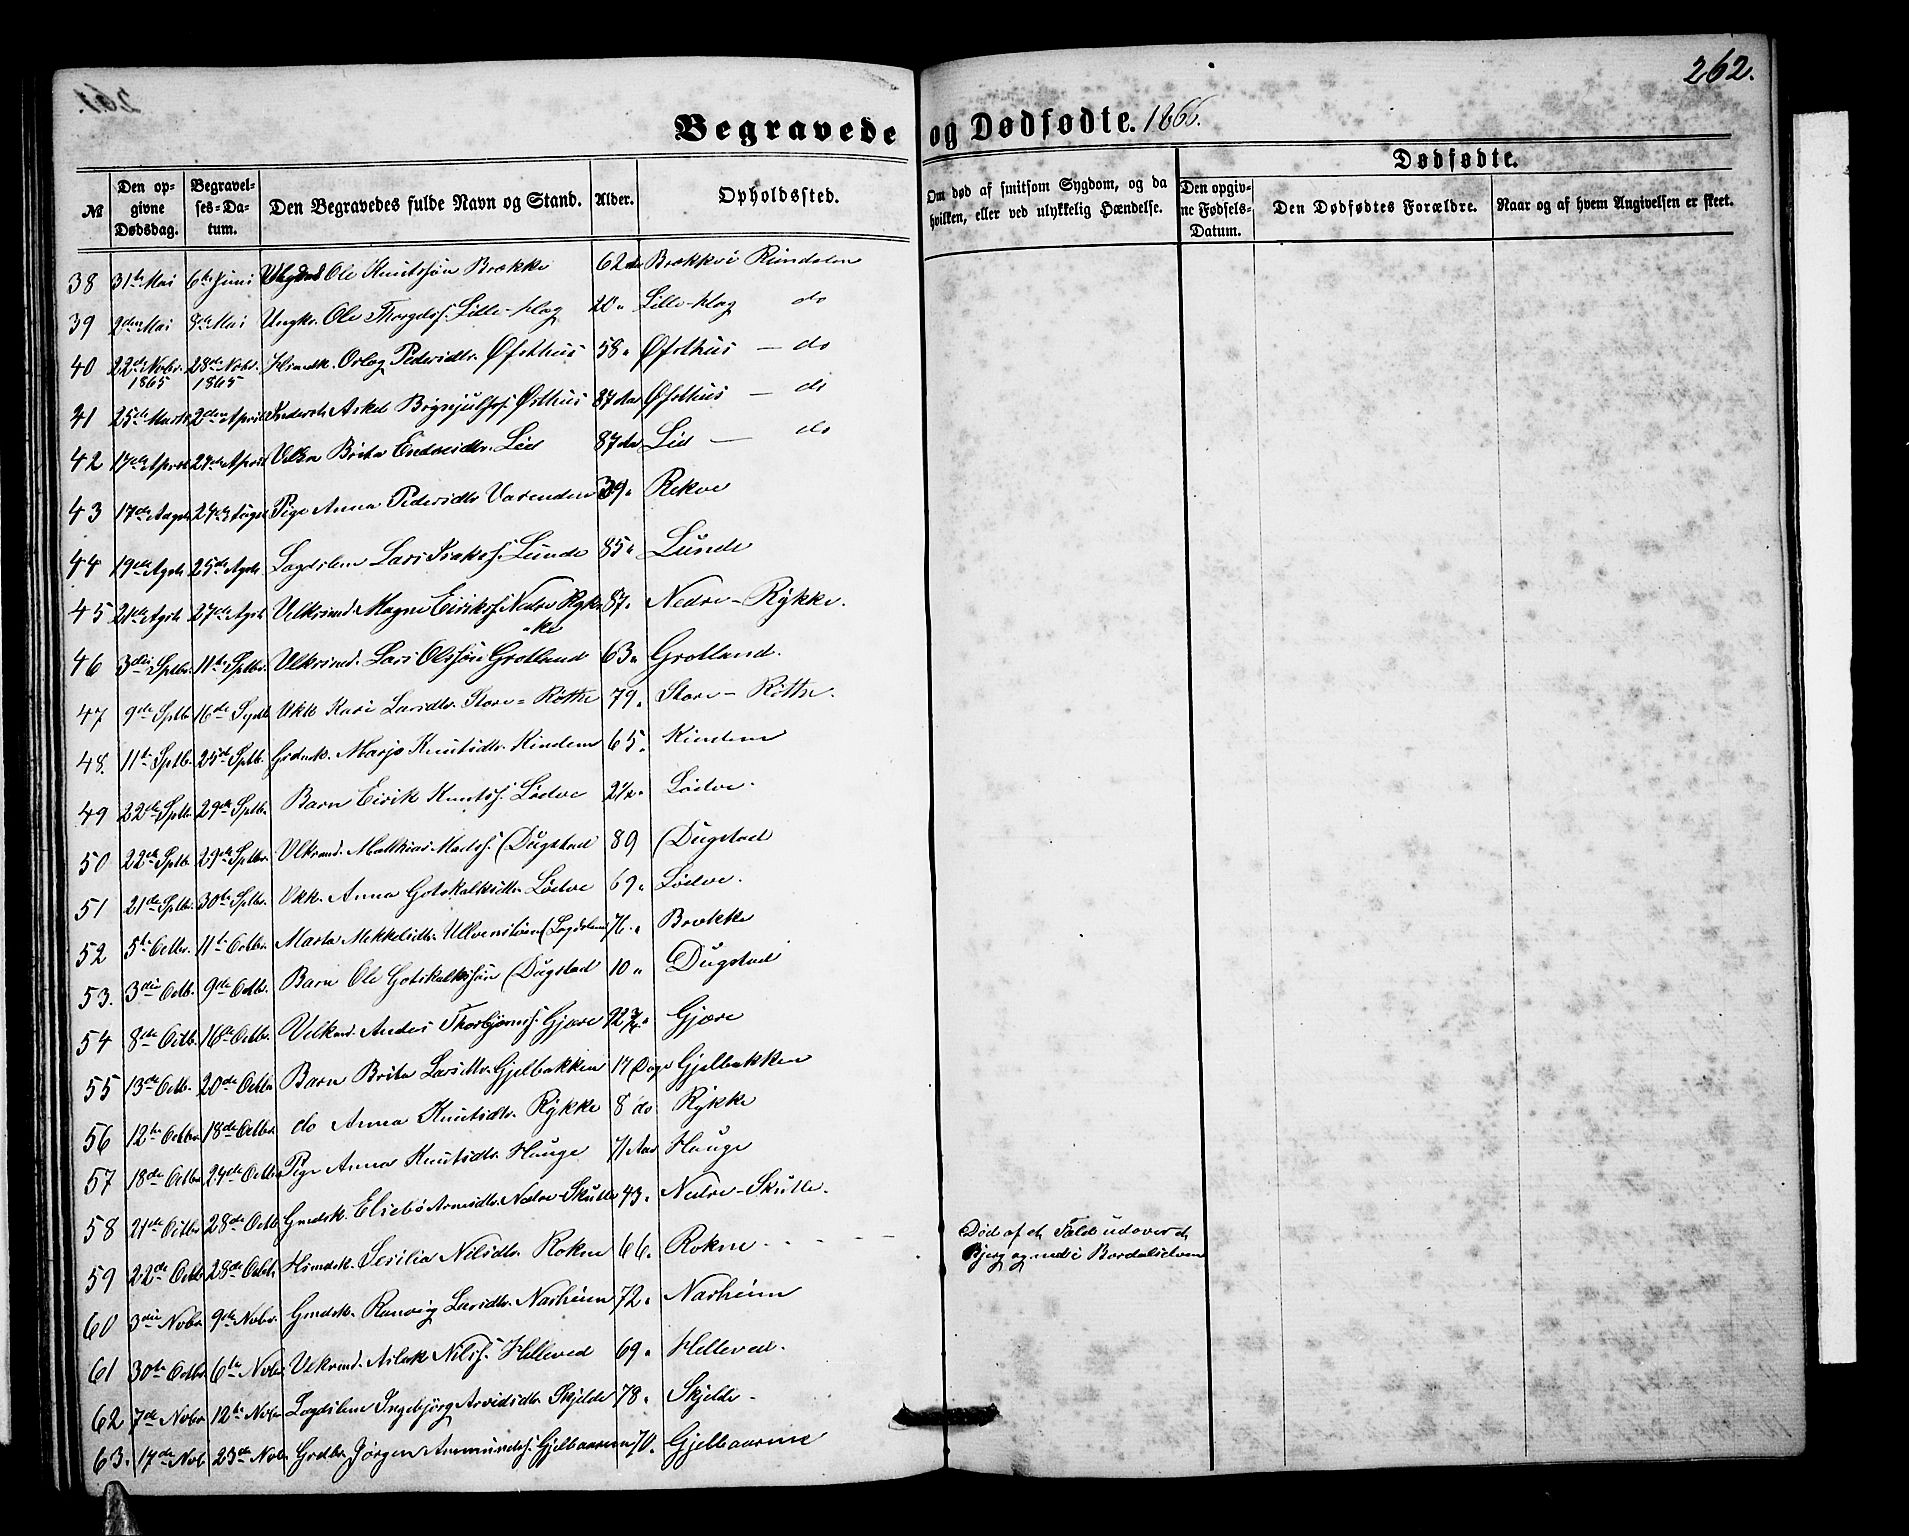 262.
Begravede og Dødfødte. 1866.
Dødfødte.
No
Den opgivne Dødsdag.
Begravelses-Datum.
Den Begravedes fulde Navn og Stand.
Alder.
Opholdssted.
Om død af smitsom Sygdom, og da hvilken, eller ved ulykkelig Hændelse.
Den opgivne Fødsels-Datum.
Den Dødfødtes Forældre.
Naar og af hvem Angivelsen er skeet.
38 31te Mai 6te Juni Ole Knutssøn Brække 62 Brække i Rundalen
39 2den Mai 8de Mai Ungk. Ole Lille-Klag 20 " Lille-Klag do
40 22de Nobr. 1865 28de Nobr. 1865 Pedersdtr. Øfsthus 58 " Øfsthus — do
41 25de Marts 2den April Askel Brynjulfs. Østhus 87 Øfsthus — do
42 17de April 24de April Brita Endresdtr. Lid 87 Lid — do
43 17de Augst 24de Augst Pige Anna Pedersdtr Varenden 39 " Rekve
44 19de Agst 25de Agst Lagdslem Lars Isaks. Lunde 85 " Lunde
45 21de Agst 27de Agst Velkrmd. Magne Eiriks. Nedre Ryk- 87 " Nedre-Rykke.
"ke
46 3die Sptbr. 11te Sptbr. Velkrmd. Lars Olssøn Grotland 63 " Grotland.
47 9de Sptb. 16de Sptb. Vkk Kari Larsdtr. Store-Röthe 79 " Store-Röthe.
48. 11te Sptb. 25de Sptb. Marjo Knutsdtr. Kindem 65 " Kindem
49 22de Sptb. 29de Sptb. Barn Eirik Knuts. Lödve 2½ " Lödve.
50 22de Sptb. 29de Sptbr. Velkrmd. Mathias Mads. Dugstad 89 Dugstad
51 21de Sptb. 30te Sptbr. Vkk. Anna Gotskalksdtr. Lödve 69 " Lödve.
52 5te Octbr. 11te Octbr. Marta Mekkelsdtr. (Lagdslem) 76 " Brække
53. 3die Octb. 9de Octb. Barn Ole Gotskalkssøn Dugstad 10 " Dugstad
54 8de Octb. 16de Octb. Anders Thorbjørns. Gjære Gjære
55 13de Octb. 20de Octbr Barn Brita Larsdtr. Gjelbakken 17 Dage Gjelbakken
56 12te Octbr 18de Octbr. do Anna Knutsdtr. Rykke 8 do Rykke
57 18de Octbr. 24de Octbr Pige Anna Knutsdtr. Hauge Aar Hauge
58 21de Octbr. 28de Octb. Gmdsk. Elsebö Arnesdtr. Nedre-Skutle 43 " Nedre-Skutle.
59 22de Octb. 28de Octb. Hsmdsk. Sesilia Nilsdtr. Rokne 66 " Rokne.
Død af et Fald udover et
Bjerg og ned i Bordalselven
60 3die Nvbr 9de Nvbr. Gmdsk. Ranveig Larsdtr. Narheim 72 " Narheim
61 30te Octbr. 6te Nvbr. Velkrmd. Aslak Nils. Helleved 69 " Helleved.
62 7de Nvbr 12te Nvbr Lagdslem Ingebjörg Arvidsdtr. Skjelde 78 " Skjelde.
63. 17de Nvb. 23de Nvb. Grdbr. Jørgen Ammunds. Gjelbaarme 70 " Gjelbaarme